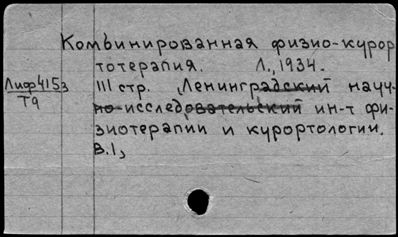 Комбинированная физио-курор
тотерапия. Л., 1934.
Лиф4153
Т9
111 стр. Ленинградский науч-
но-исследовательский ин-т фи-
зиотерапии и курортологии.
В.1,